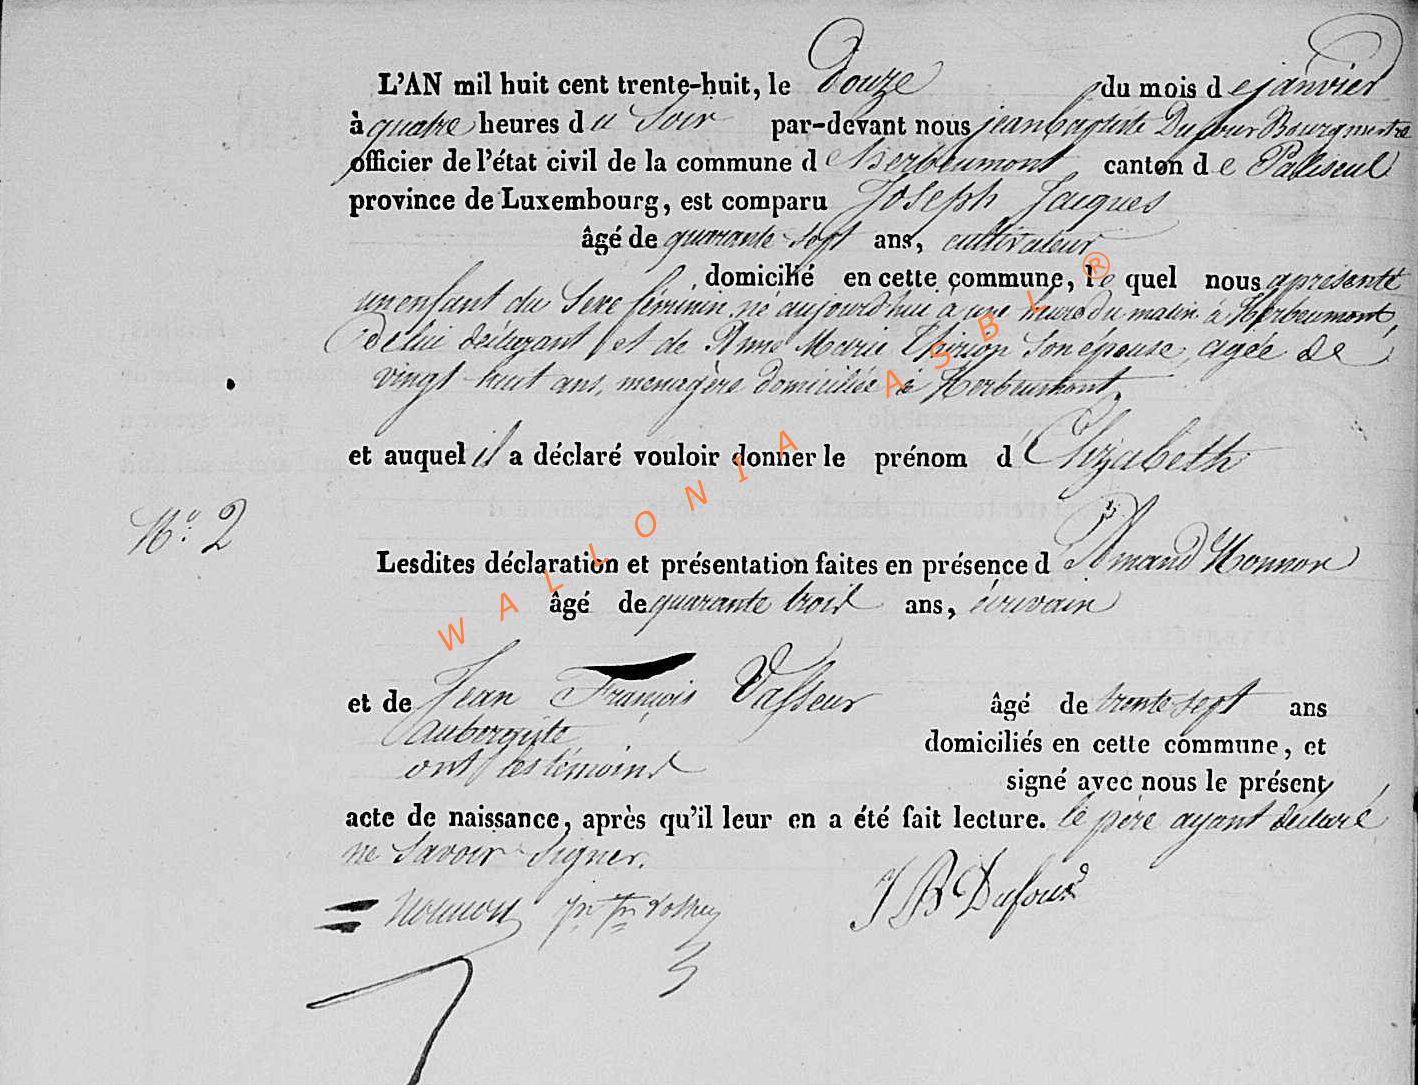 L'AN mil huit cent trente-huit, le Douze du mois de janvier
à quatre heures du Soir par-devant nous jean baptiste Dufour Bourgmestre
officier de l'état civil de la commune d'herbeumont canton de Paliseul
province de Luxembourg, est comparu Joseph Jacques
âgé de quarante sept ans, cultivateur
domicilié en cette commune, le quel nous a présenté
un enfant du Sexe féminin né aujourd'hui à une heure du matin à Herbeumont,
De lui déclarant et de Anne Marie Thirion Son épouse, agée de
vingt huit ans, menagère domiciliée à Herbeumont
et auquel il a déclaré vouloir donner le prénom d'Elizabeth
N.° 2
Lesdites déclaration et présentation faites en présence d'Amand Nonnon
âgé de quarante trois ans, écrivain
et de Jean François Vasseur âgé de trente sept ans
Aubergiste
domiciliés en cette commune, et
ont les témoins
signé avec nous le présent
acte de naissance, après qu'il leur en a été fait lecture. le père ayant déclaré
ne Savoir Signer.
Nonnon J B Dufour
WALLONIA ASBL ®